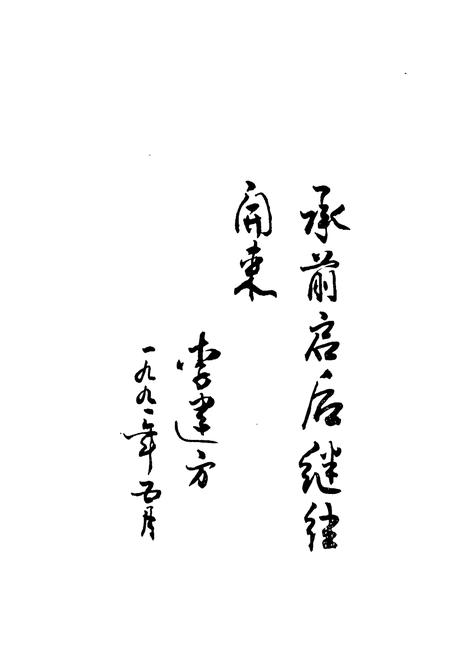 承前启后继往
开来
李建方
一九九一年五月